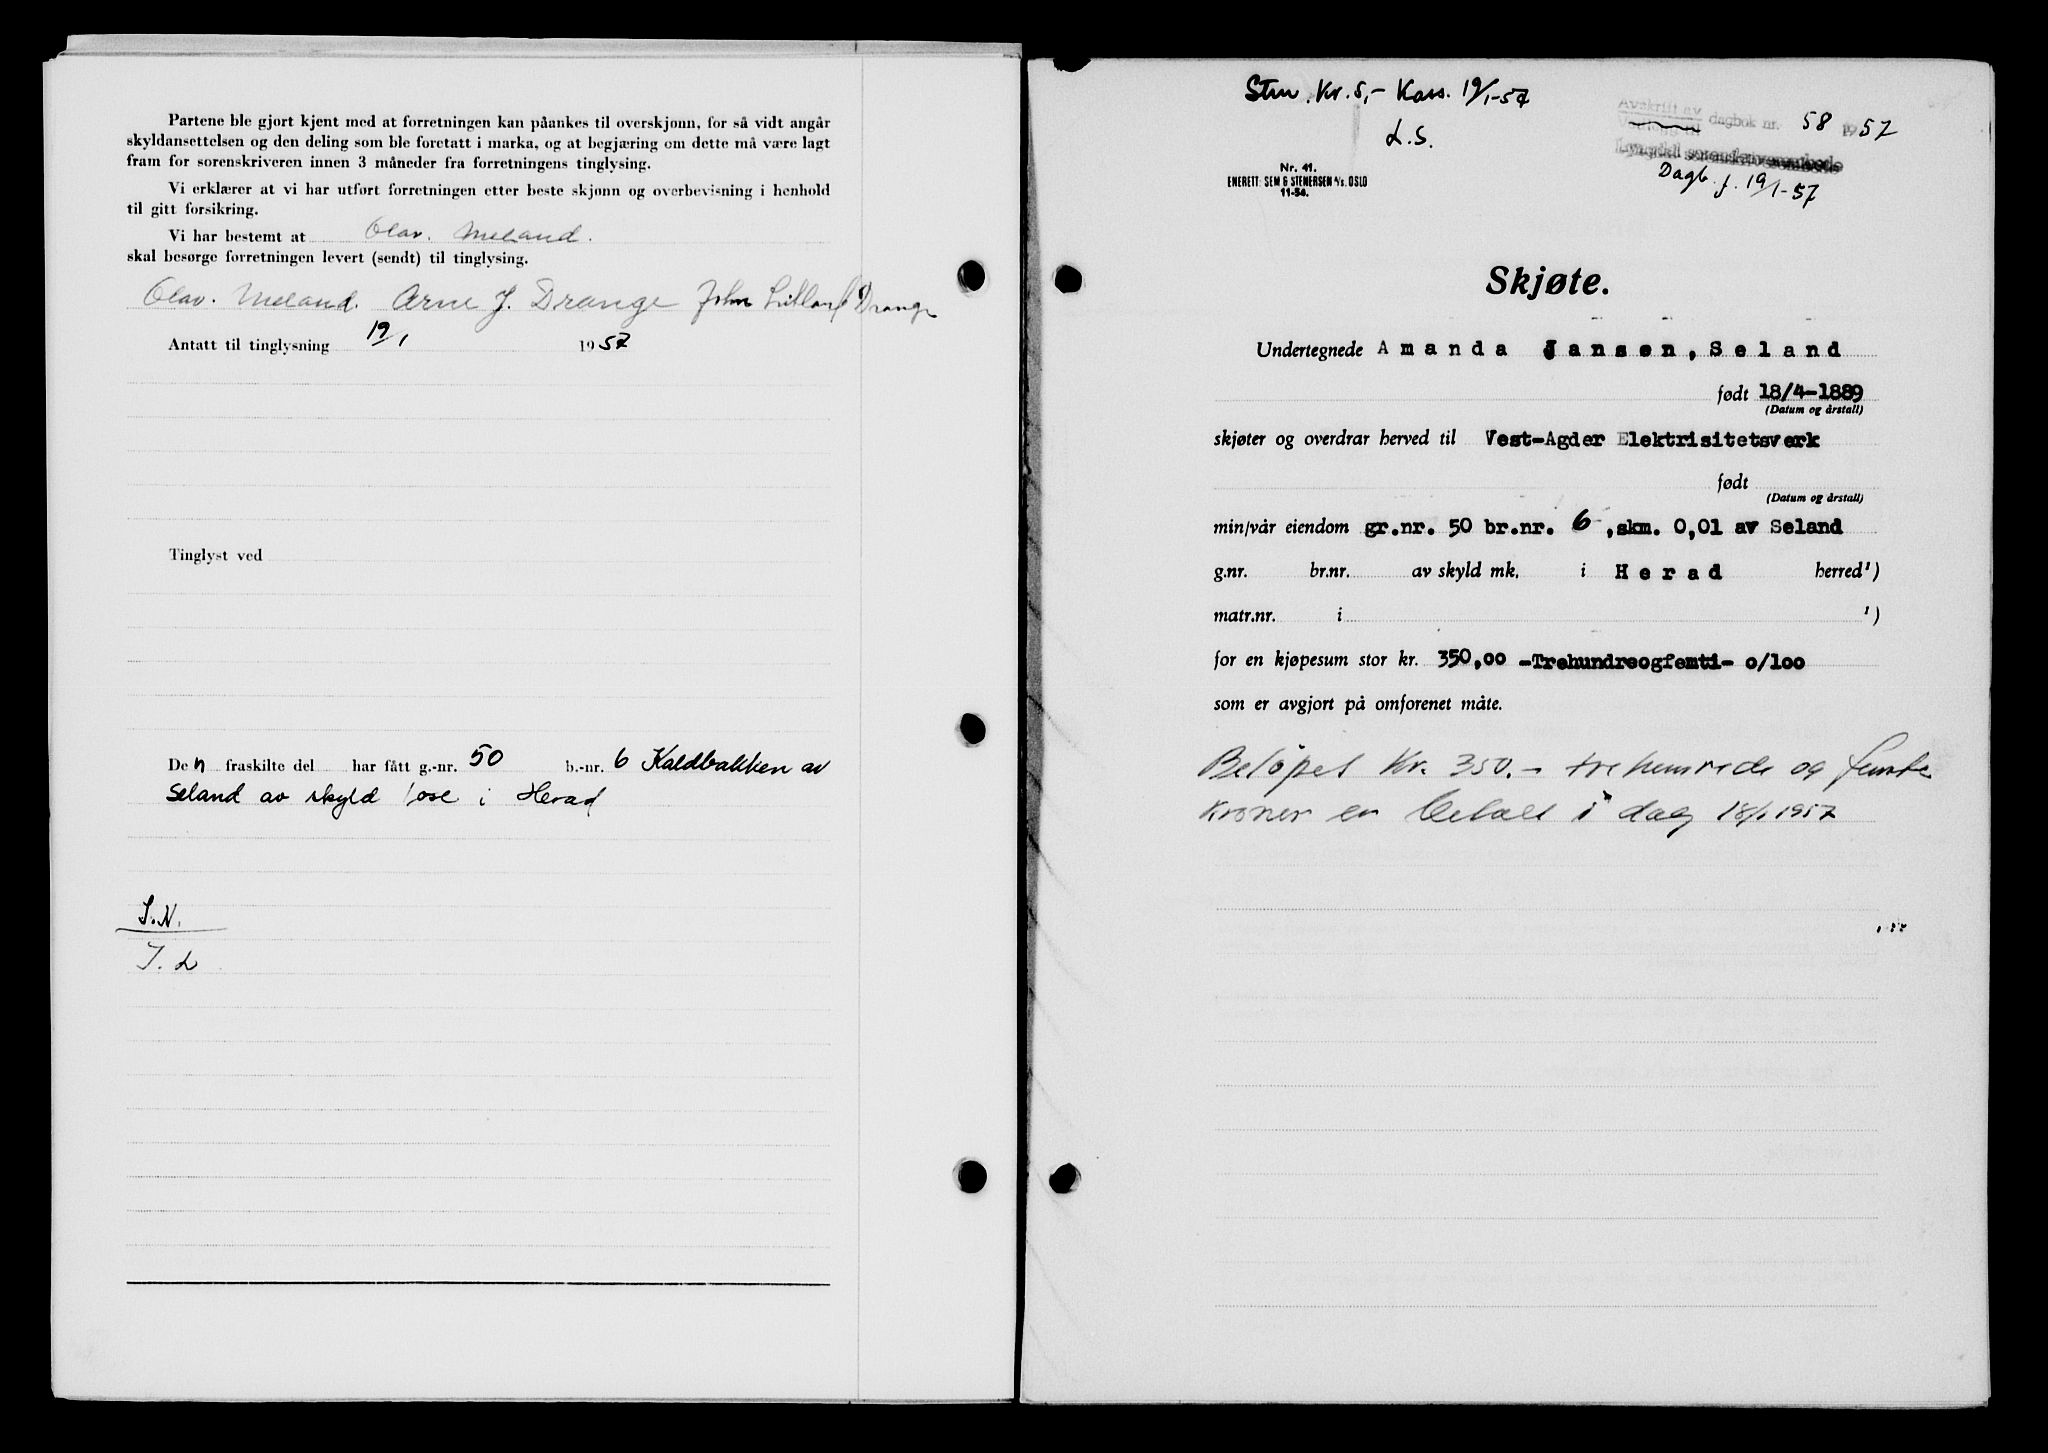 Partene ble gjort kjent med at forretningen kan påankes til overskjønn, for så vidt angår
skyldansettelsen og den deling som ble foretatt i marka, og at begjæring om dette må være lagt
fram for sorenskriveren innen 3 måneder fra forretningens tinglysing.
Vi erklærer at vi har utført forretningen etter beste skjønn og overbevisning i henhold
til gitt forsikring.
Vi har bestemt at Olav. Meland.
skal besørge forretningen levert (sendt) til tinglysing.
Olav. Meland. Arne J. Drange John Drange
Antatt til tinglysning 19/1 1957
Tinglyst ved
Den fraskilte del har fått g.-nr. 50 b.-nr. 6 Kaldbakken av
Seland av skyld 1 øre i Herad
S.N.
T. L
Stm. Kr. 5,- Kass. 19/1-57
L.S.
Nr. 41.
ENERETT: SEM & STENERSEN A/S. OSLO
11-54.
Avskrift av
dagbok nr. 58 1957
Lyngdal sorenskriverembede
Dagb. f. 19/1-57
Skjøte.
Undertegnede Amanda Jansen, Seland
født 18/4-1889
(Datum og årstall)
skjøter og overdrar herved til Vest-Agder Elektrisitetsverk
født
(Datum og årstall)
min/vår eiendom gr.nr. 50 br.nr. 6 ,skm. 0,01 av Seland
g.nr. br.nr. av skyld mk. i Herad herred¹)
matr.nr. i ¹)
for en kjøpesum stor kr. 350,00 -Trehundreogfemti- 0/100
som er avgjort på omforenet måte.
Beløpet Kr. 350.- trehunrede og femte
kroner er betalt i dag 18/1 1957